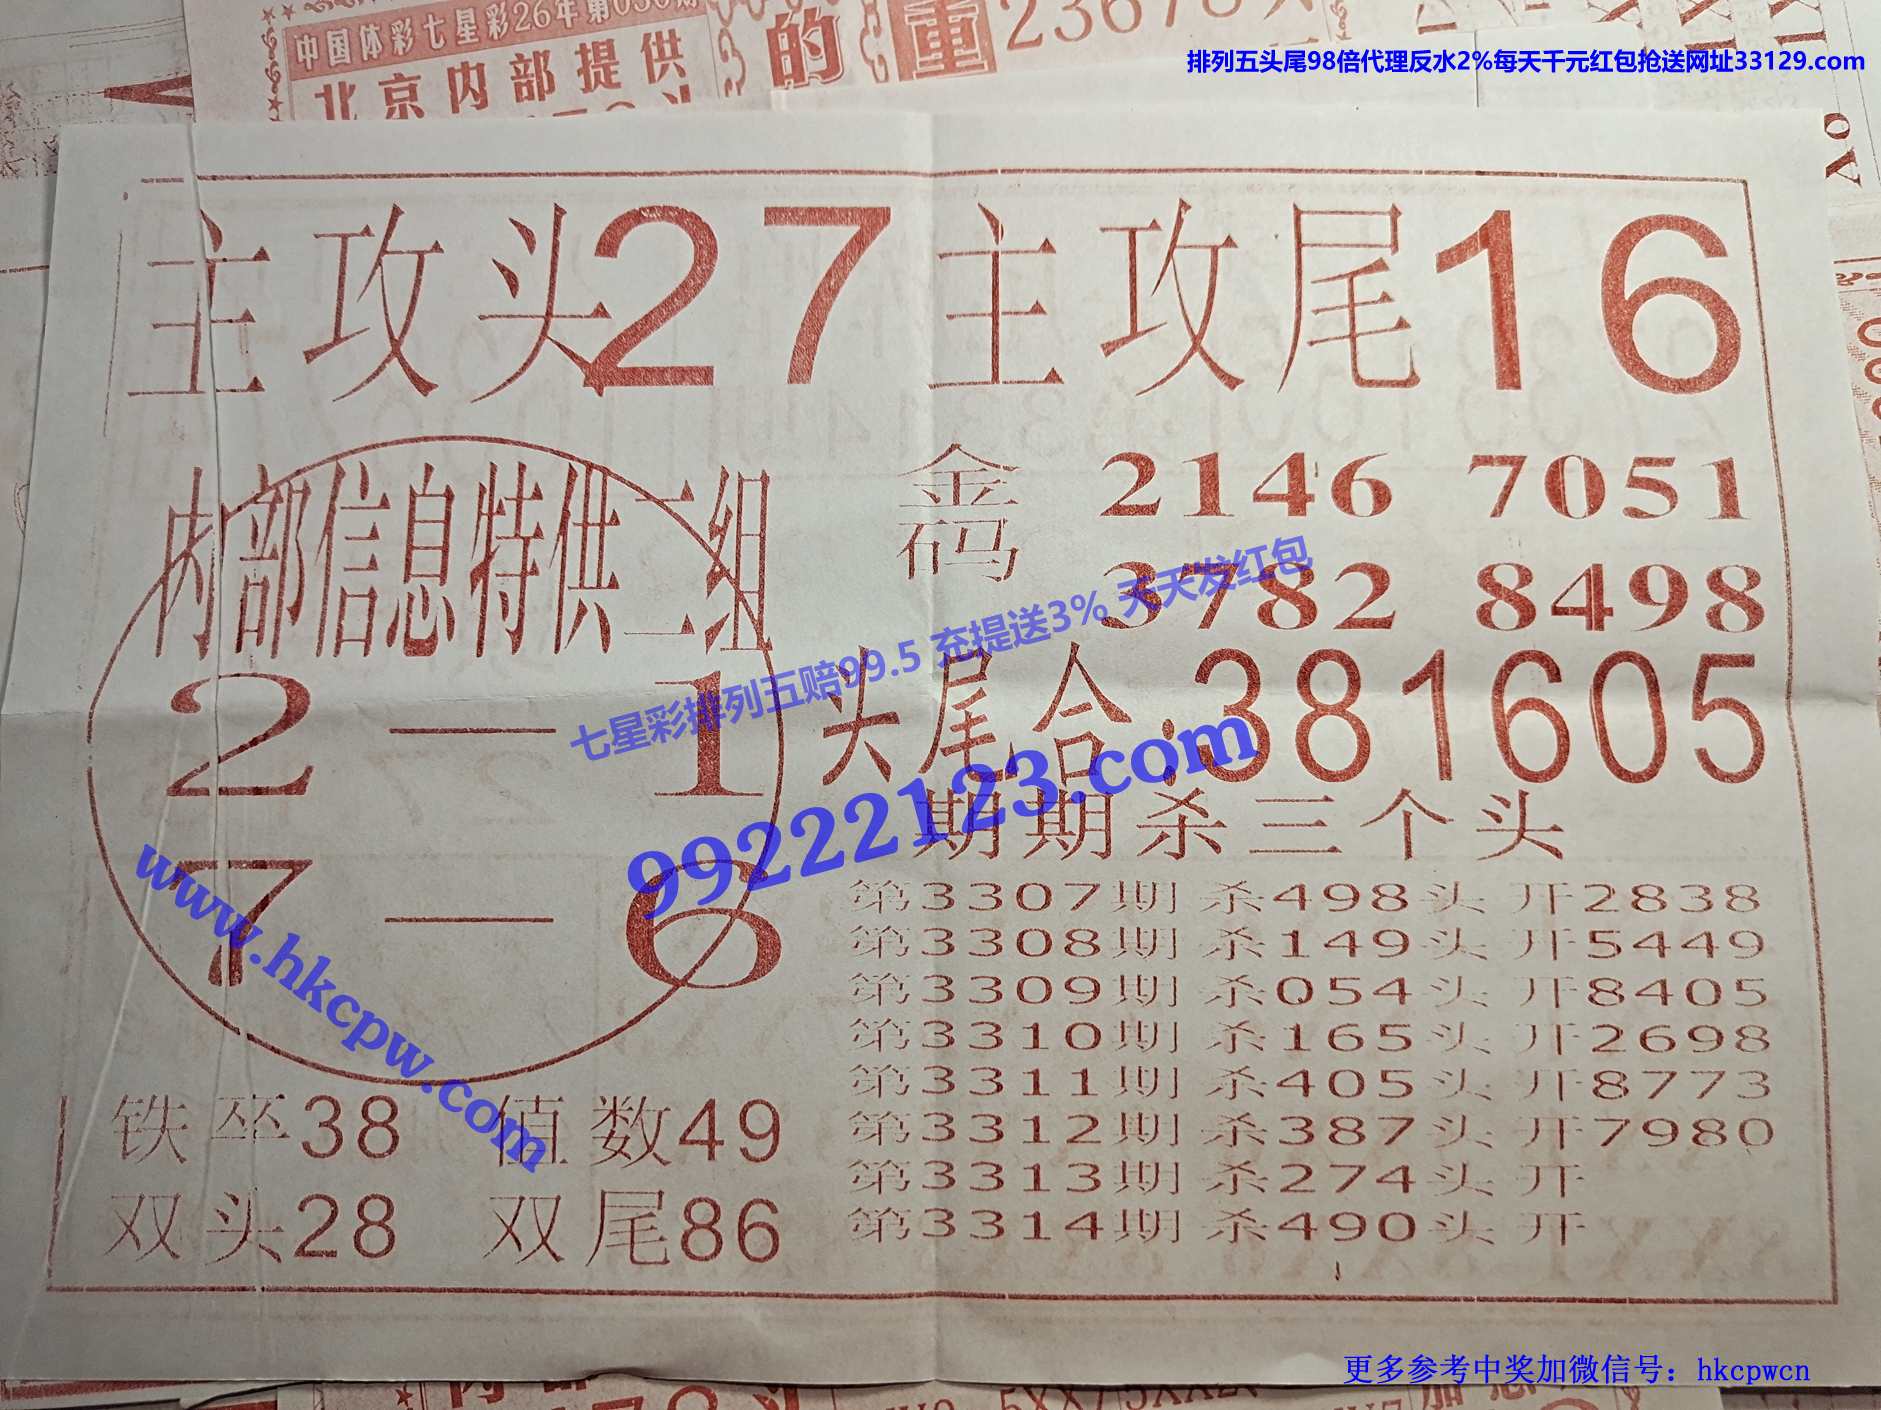 中国体彩七星彩26年第030期
北京内部提供
的 重 23678X
排列五头尾98倍代理反水2%每天千元红包抢送网址33129.com
主攻头27 主攻尾16
内部信息特供二组
2—1
7—6
金码 2146 7051
3782 8498
七星彩排列五赔99.5 充提送3% 天天发红包
头尾合:381605
99222123.com
www.hkcpw.com
期期杀三个头
第3307期 杀498头 开2838
第3308期 杀149头 开5449
第3309期 杀054头 开8405
第3310期 杀165头 开2698
第3311期 杀405头 开8773
第3312期 杀387头 开7980
第3313期 杀274头 开
第3314期 杀490头 开
铁卒38 值数49
双头28 双尾86
更多参考中奖加微信号：hkcpwcn